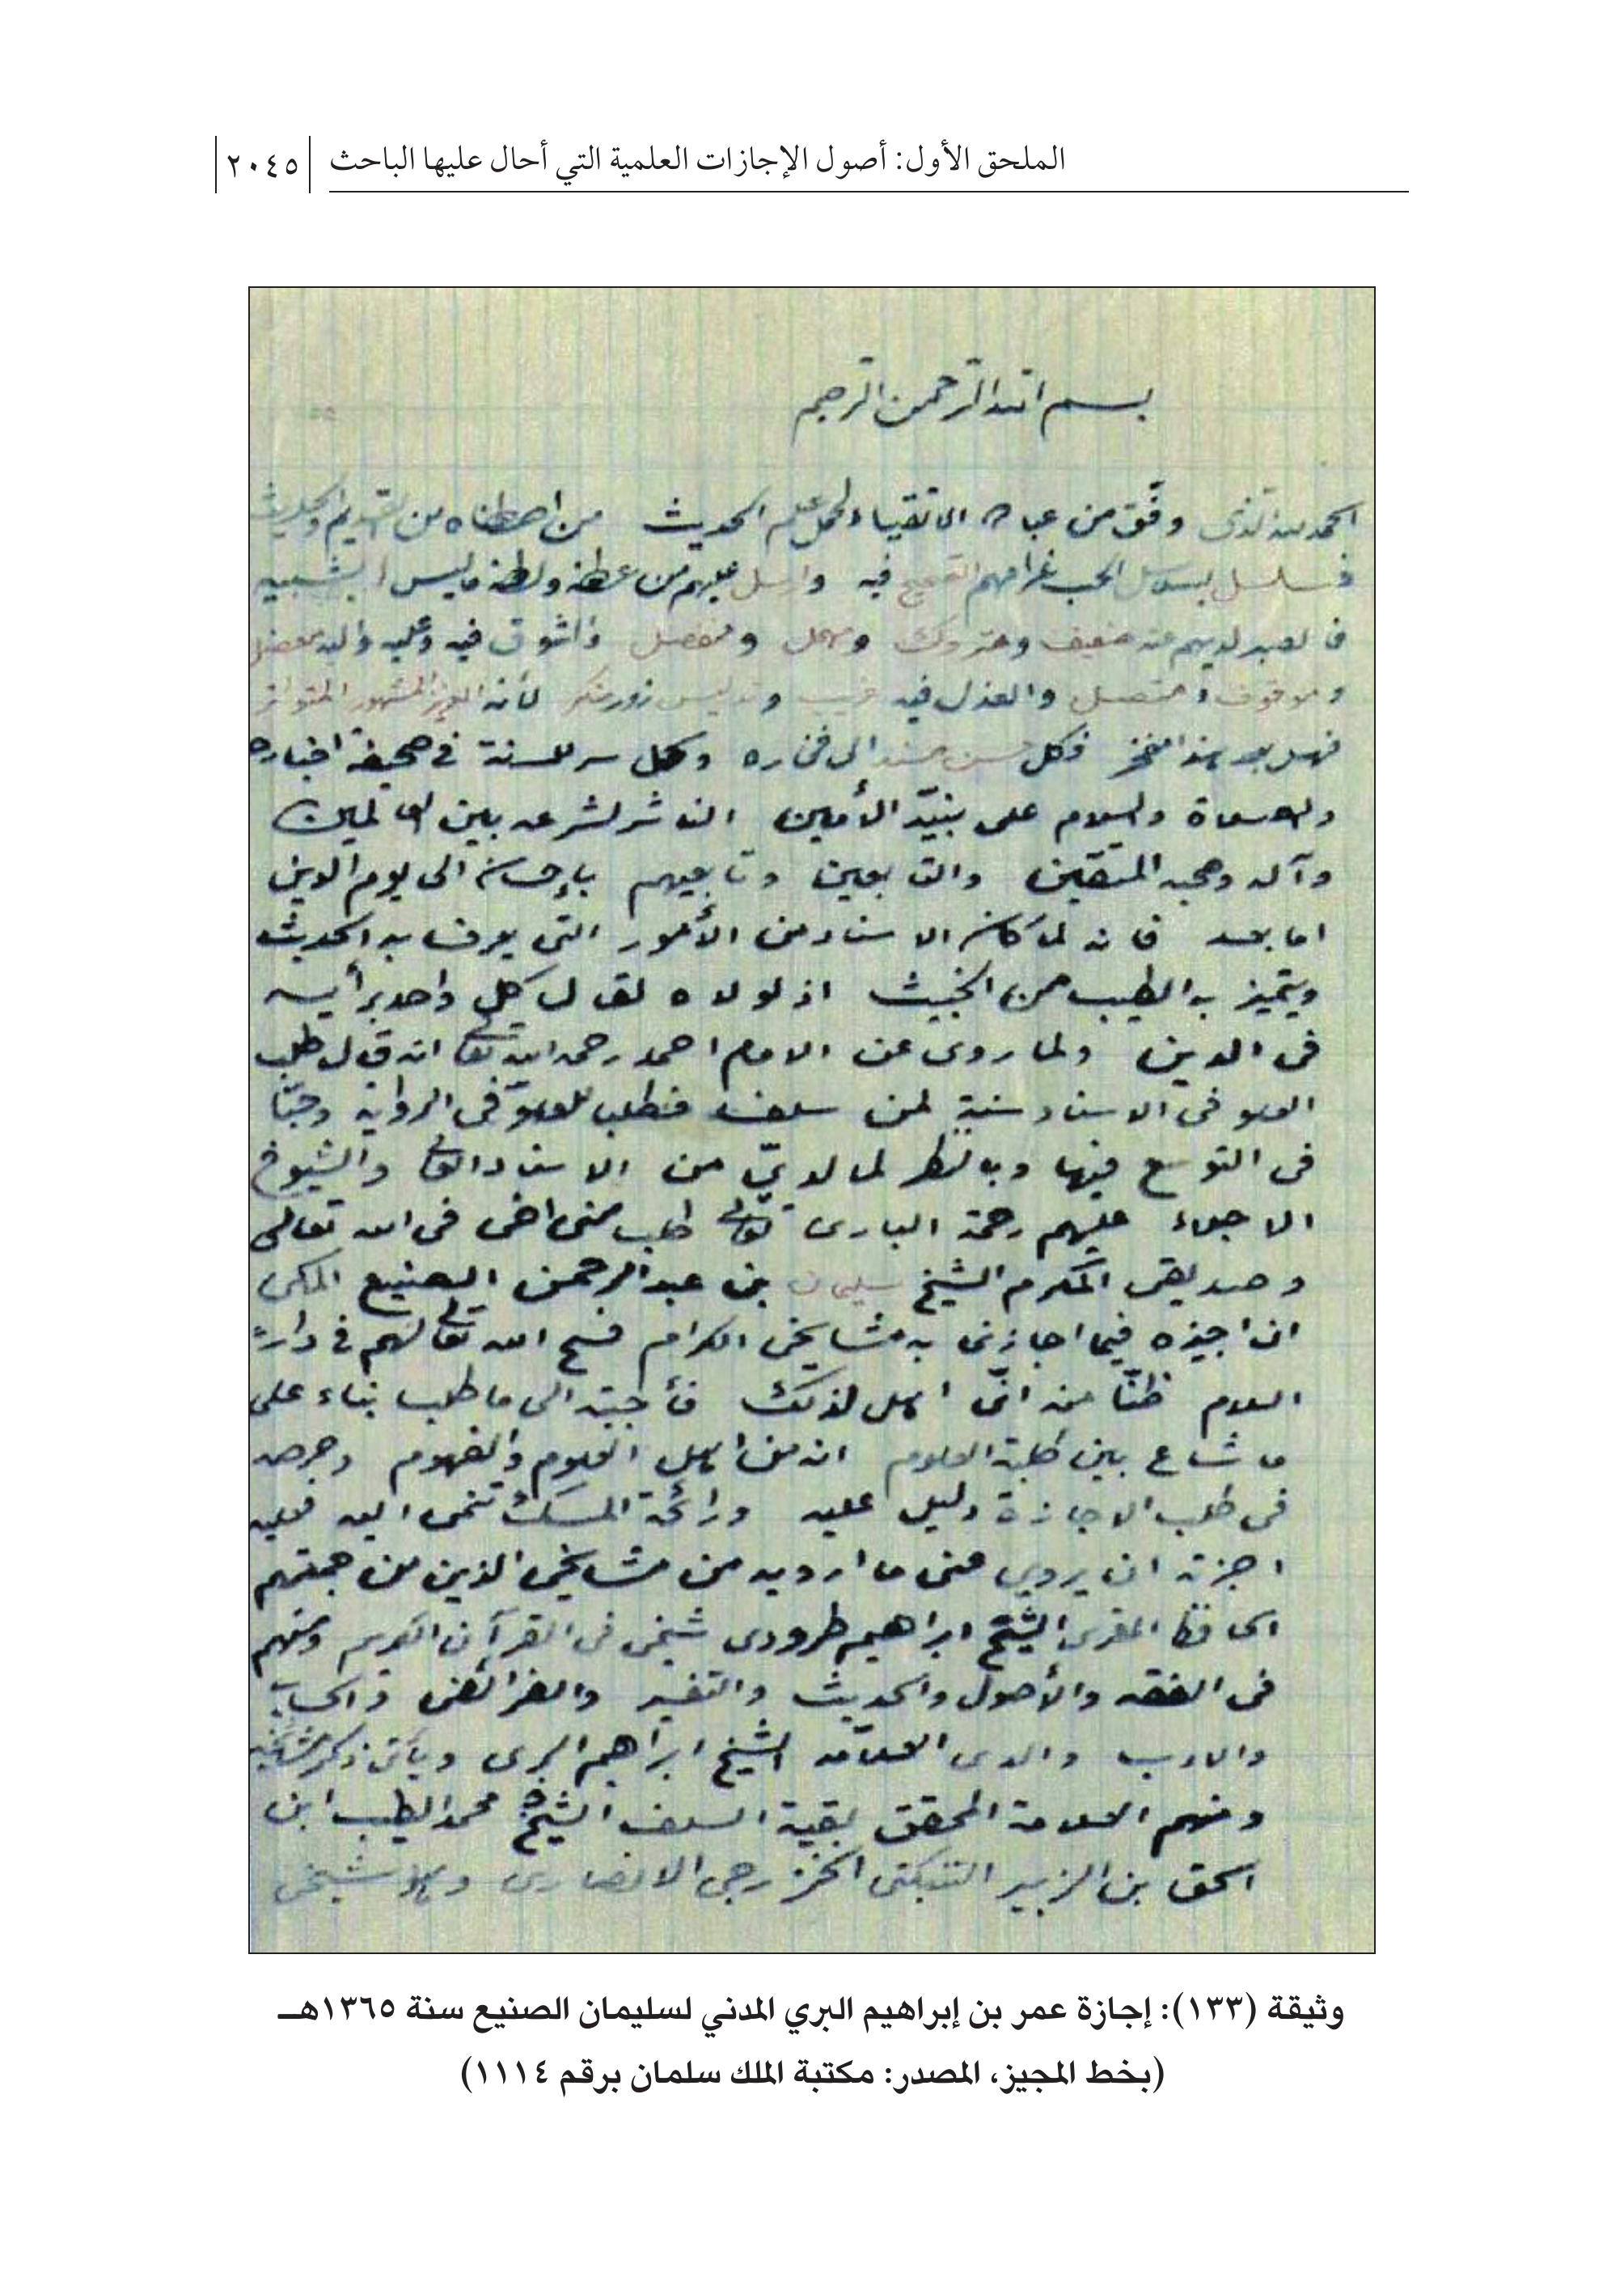 الملحق الأول: أصول الإجازات العلمية التي أحال عليها الباحث ٢٠٤٥
بسم الله الرحمن الرحيم
الحمد لله الذى وفق من عباده الاتقياء لحمل علم الحديث من اصطفاه من القديم والحديث
فسلسل بسلاسل الحب غرامهم الصحيح فيه وارسل عليهم من عطفه ولطفه ماليس
ضعيف ومتروك ومهمل
والعذل فيه غريب وتدليس زور منكر لأنه العزيز المشهور المتواتر
فهل بعد هذا فخر فكل حسن مسند الى فخاره وكل سر للسنة فى صحيفة اخباره
والصلاة والسلام على نبيّه الأمين الناشر لشرعه بين العالمين
وآله وصحبه المتقين والتابعين وتابعيهم بإحسان الى يوم الدين
اما بعد فانه لما كان الاسناد من الأمور التى يعرف به الحديث
ويتميز به الطيب من الخبيث اذ لولاه لقال كل واحد برأيه
فى الدين ولما روى عن الامام احمد رحمه الله تعالى انه قال طلب
العلو فى الاسناد سنة لمن سلف فطلب للعلوّ فى الرواية وحبّا
فى التوسع فيها وبالنظر لما لديّ من الاسناد العالى والشيوخ
الاجلاء عليهم رحمة البارى تعالى طلب منى اخى فى الله تعالى
وصديقى المكرم الشيخ سليمان بن عبد الرحمن الصنيع المكى
ان اجيزه فيما اجازنى به مشايخى الكرام فسح الله تعالى لهم فى دار
السلام ظنّا منه انّى اهل لذلك فأجبته الى ما طلب بناء على
ما شاع بين طلبة العلوم انه من اهل العلوم والفهوم وحرصه
فى طلب الاجازة دليل عليه ورائحة المسك تنمى اليه فعليه
اجزته ان يروي عنى ما ارويه من مشايخى الذين من جملتهم
الحافظ المقرى الشيخ ابراهيم طرودى شيخى فى القرآن الكريم ومنهم
فى الفقه والأصول والحديث والتفسير والفرائض والحساب
والادب والدى العلاّمه الشيخ ابراهيم البرى ويأتى ذكر مشايخه
ومنهم العلامة المحقق بقية السلف الشيخ محمد الطيب ابن
اسحق بن الزبير التنبكتى الخزرجى الانصارى وهو شيخى
وثيقة (١٣٣): إجازة عمر بن إبراهيم البري المدني لسليمان الصنيع سنة ١٣٦٥هـ
(بخط المجيز، المصدر: مكتبة الملك سلمان برقم ١١١٤)